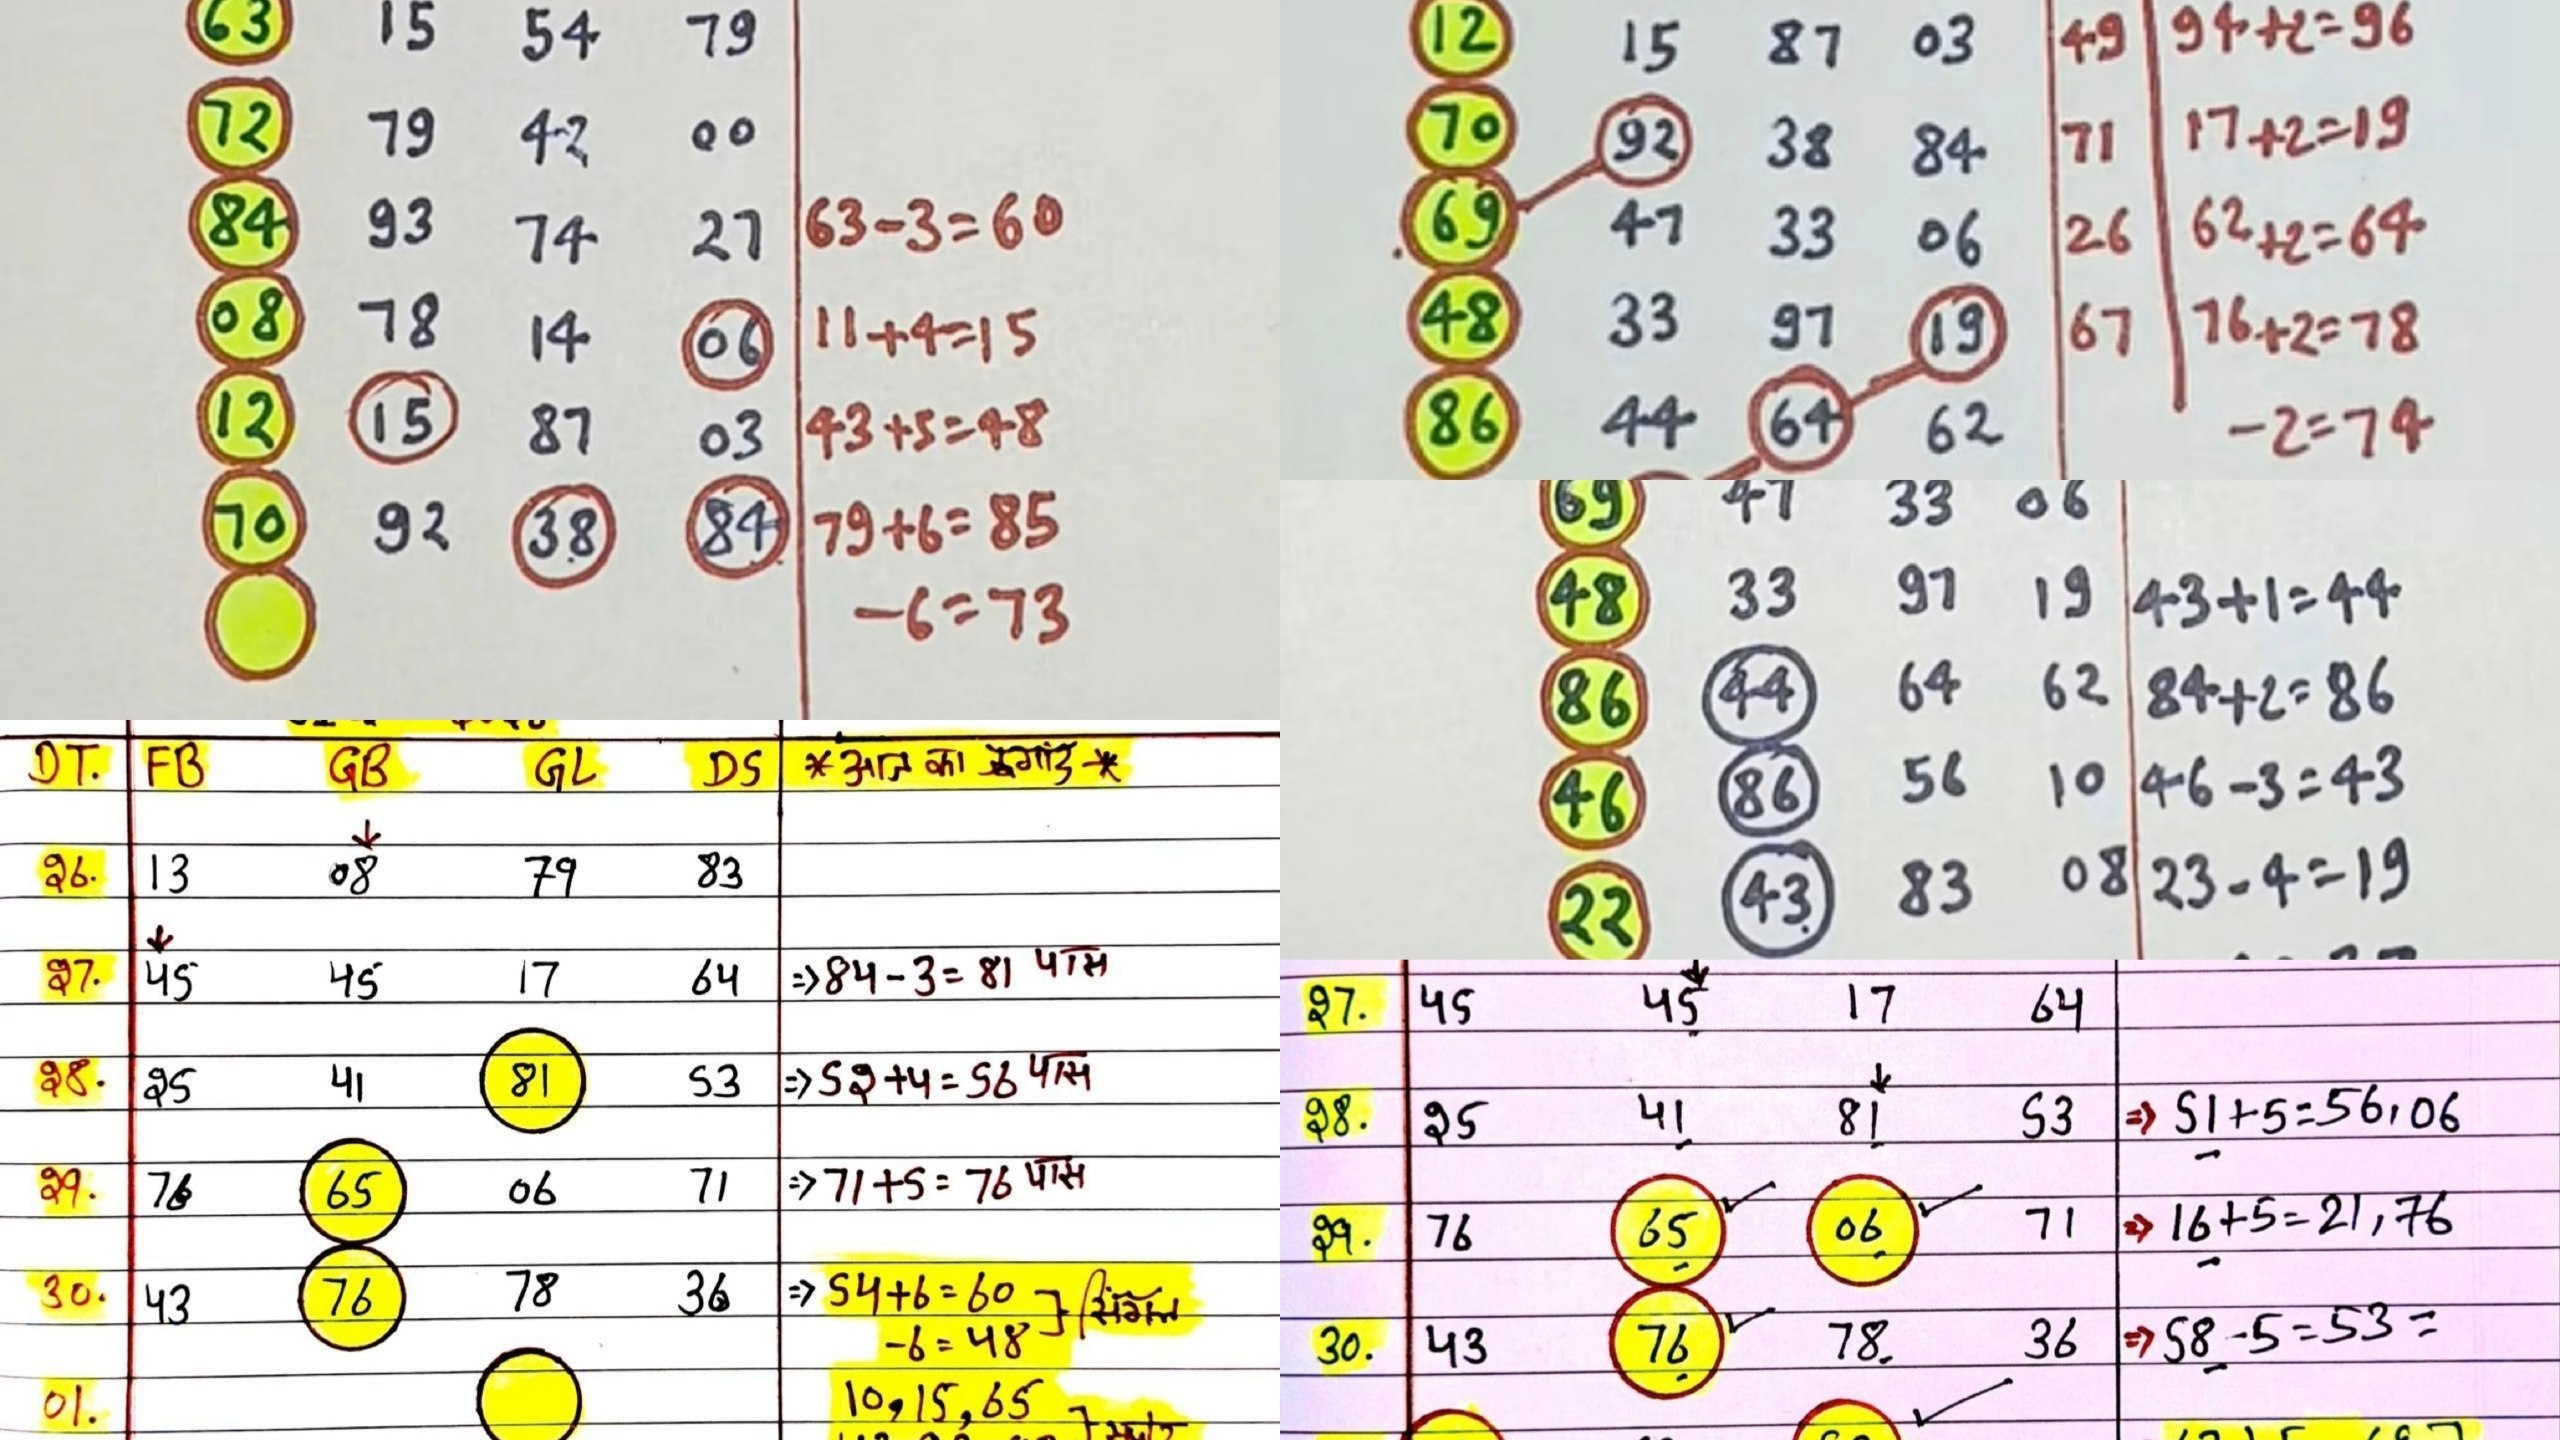 63 15 54 79
72 79 42 00
84 93 74 27 63-3=60
08 78 14 06 11+4=15
12 15 87 03 43+5=48
70 92 38 84 79+6=85
-6=73
12 15 87 03 49 94+2=96
70 92 38 84 71 17+2=19
69 47 33 06 26 62+2=64
48 33 97 19 67 76+2=78
86 44 64 62 -2=74
69 47 33 06
48 33 97 19 43+1=44
86 44 64 62 84+2=86
46 86 56 10 46-3=43
22 43 83 08 23-4=19
DT. FB GB GL DS *आज का *
26. 13 08 79 83
27. 45 45 17 64 ⇒84-3=81 पास
28. 25 41 81 53 ⇒52+4=56 पास
29. 76 65 06 71 ⇒71+5=76 पास
30. 43 76 78 36 ⇒54+6=60
-6=48
01. 10,15,65
27. 45 45 17 64
28. 25 41 81 53 ⇒51+5=56,06
29. 76 65 06 71 ⇒16+5=21,76
30. 43 76 78 36 ⇒58-5=53=